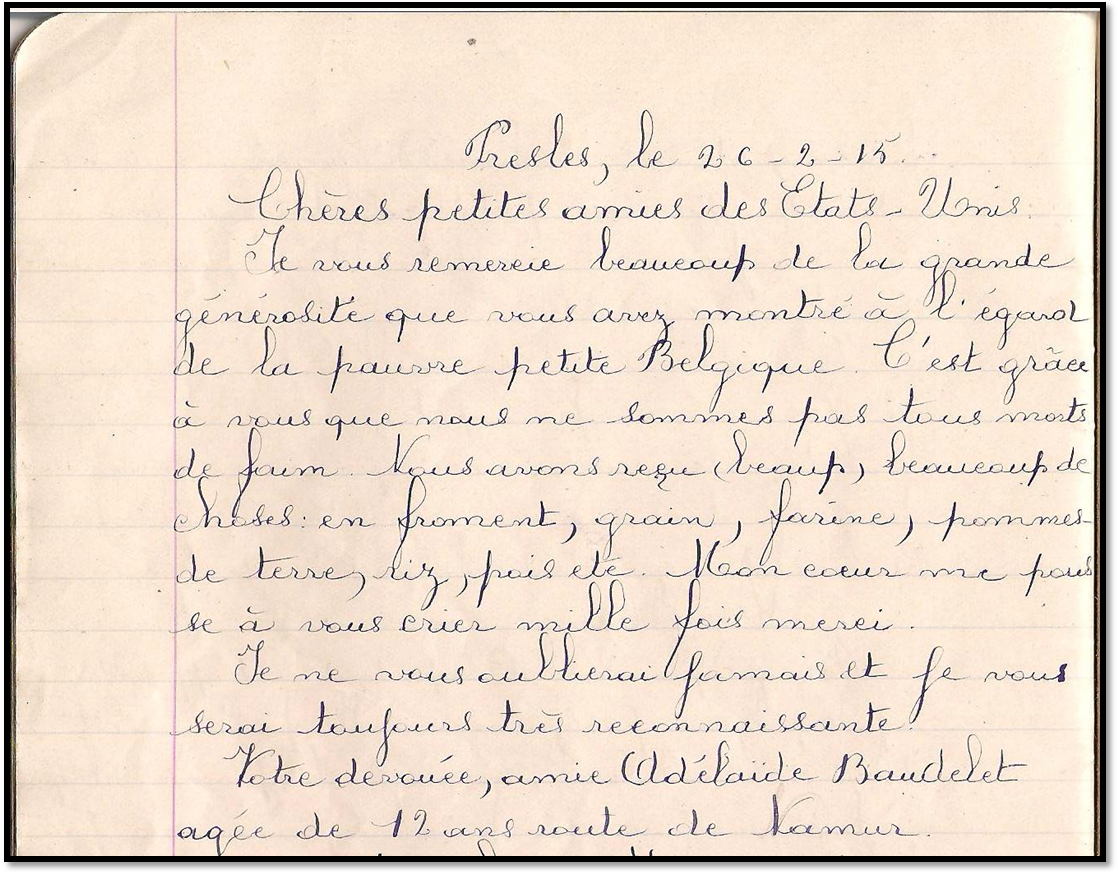 Presles, le 26-2-15.
Chères petites amies des Etats-Unis.
Je vous remercie beaucoup de la grande
générosité que vous avez montré à l'égard
de la pauvre petite Belgique. C'est grâce
à vous que nous ne sommes pas tous morts
de faim. Nous avons reçu (beaup) beaucoup de
choses: en froment, grain, farine, pommes-
de terre, riz, pois etc. Mon cœur me pous
se à vous crier mille fois merci.
Je ne vous oublierai jamais et je vous
serai toujours très reconnaissante.
Votre devouée, amie Adélaïde Baudelet
agée de 12 ans route de Namur.